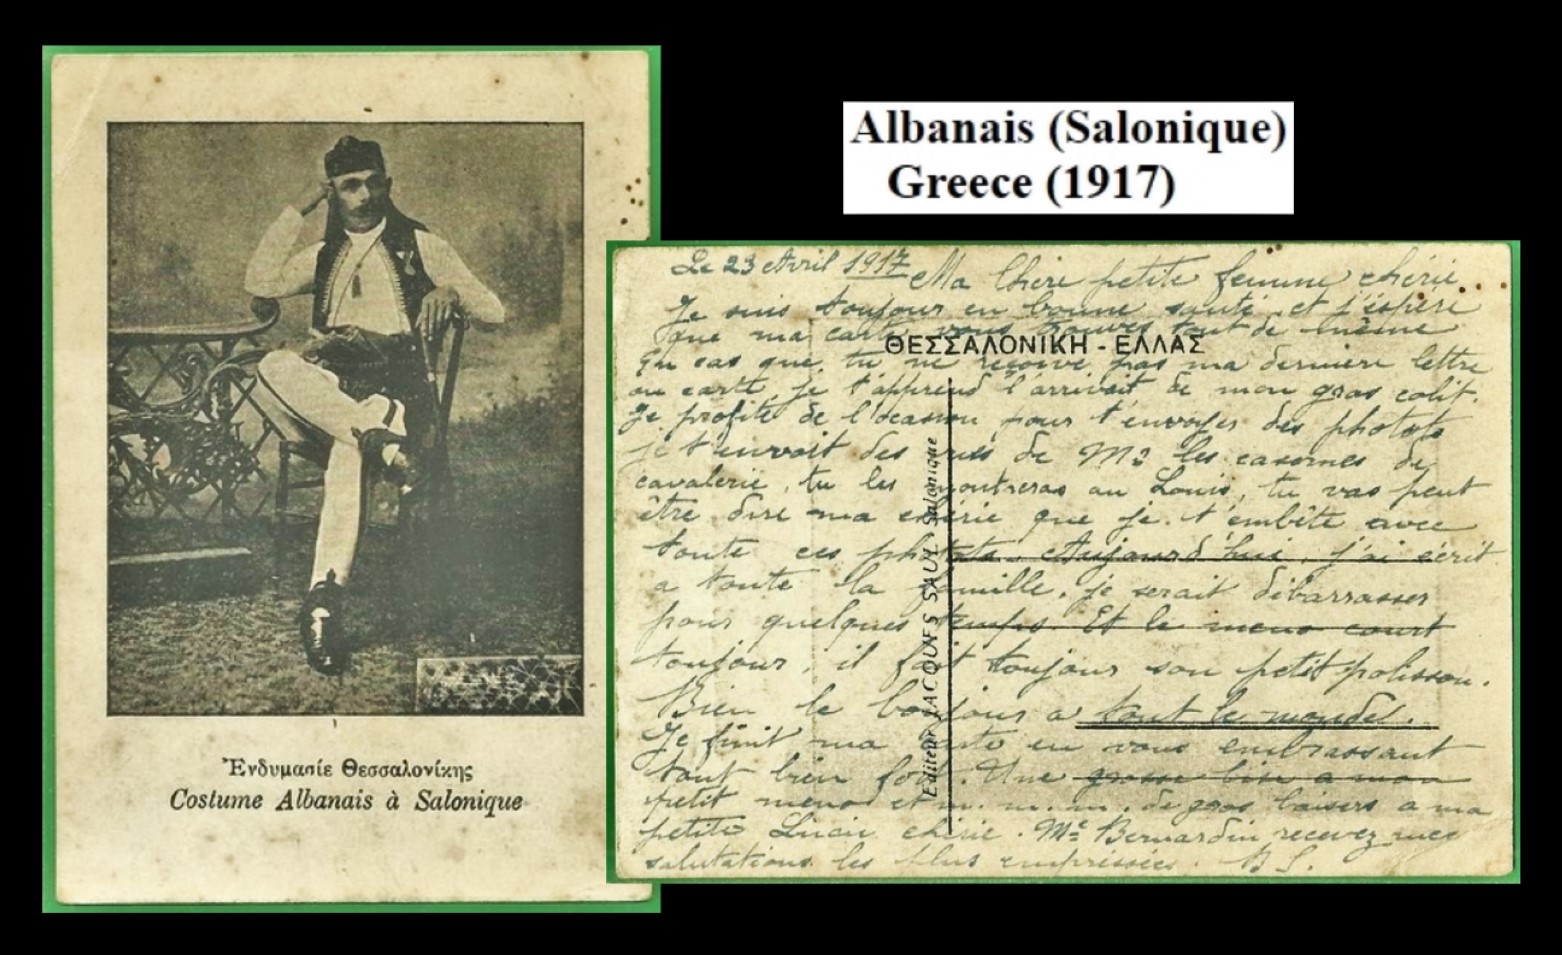 Albanais (Salonique)
Greece (1917)
Ἐνδυμασίε Θεσσαλονίκης
Costume Albanais à Salonique
Le 23 Avril 1917 Ma Chère petite femme chérie
Je suis toujour en bonne santé, et j'éspère
que ma carte vous trouves tout de même
En cas que, tu ne reçoive pas ma derniere lettre
ou carte, je t'apprend l'arrivait de mon gros colit.
Je profite de l'ocasion pour t'envoyer des photots
je t'envoit des vues de les casernes de
cavalerie, tu les montreras au Louis, tu vas peut
être dire ma chérie que je t'embête avec
toute ces photots. Aujourd'hui, j'ai écrit
a toute la famille, je serait débarrasser
pour quelques temps. Et le meno court
toujour, il fait toujour son petit polisson.
Bien le bonjour a tout le monde.
Je finit ma carte en vous embrassant
tout bien fort. Une grosse bise a mon
petit meno et m. m. m. de gros baisers a ma
petite chérie. Me Bernardin recevez mes
salutations les plus empréssées. B S.
ΘΕΣΣΑΛΟΝΙΚΗ - ΕΛΛΑΣ
Editeur JACQUES SAUL - Salonique